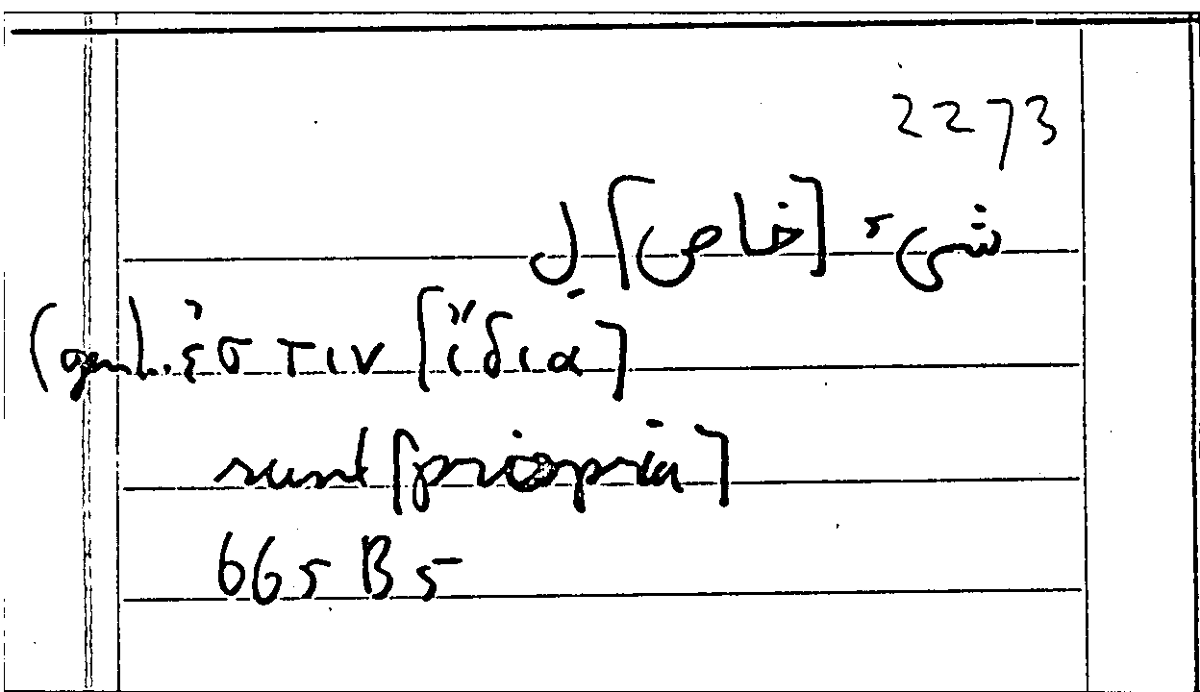 2273
شىء [خاص] ل
(gen). ἐστιν [ἴδια]
sunt [propria]
665 B 5